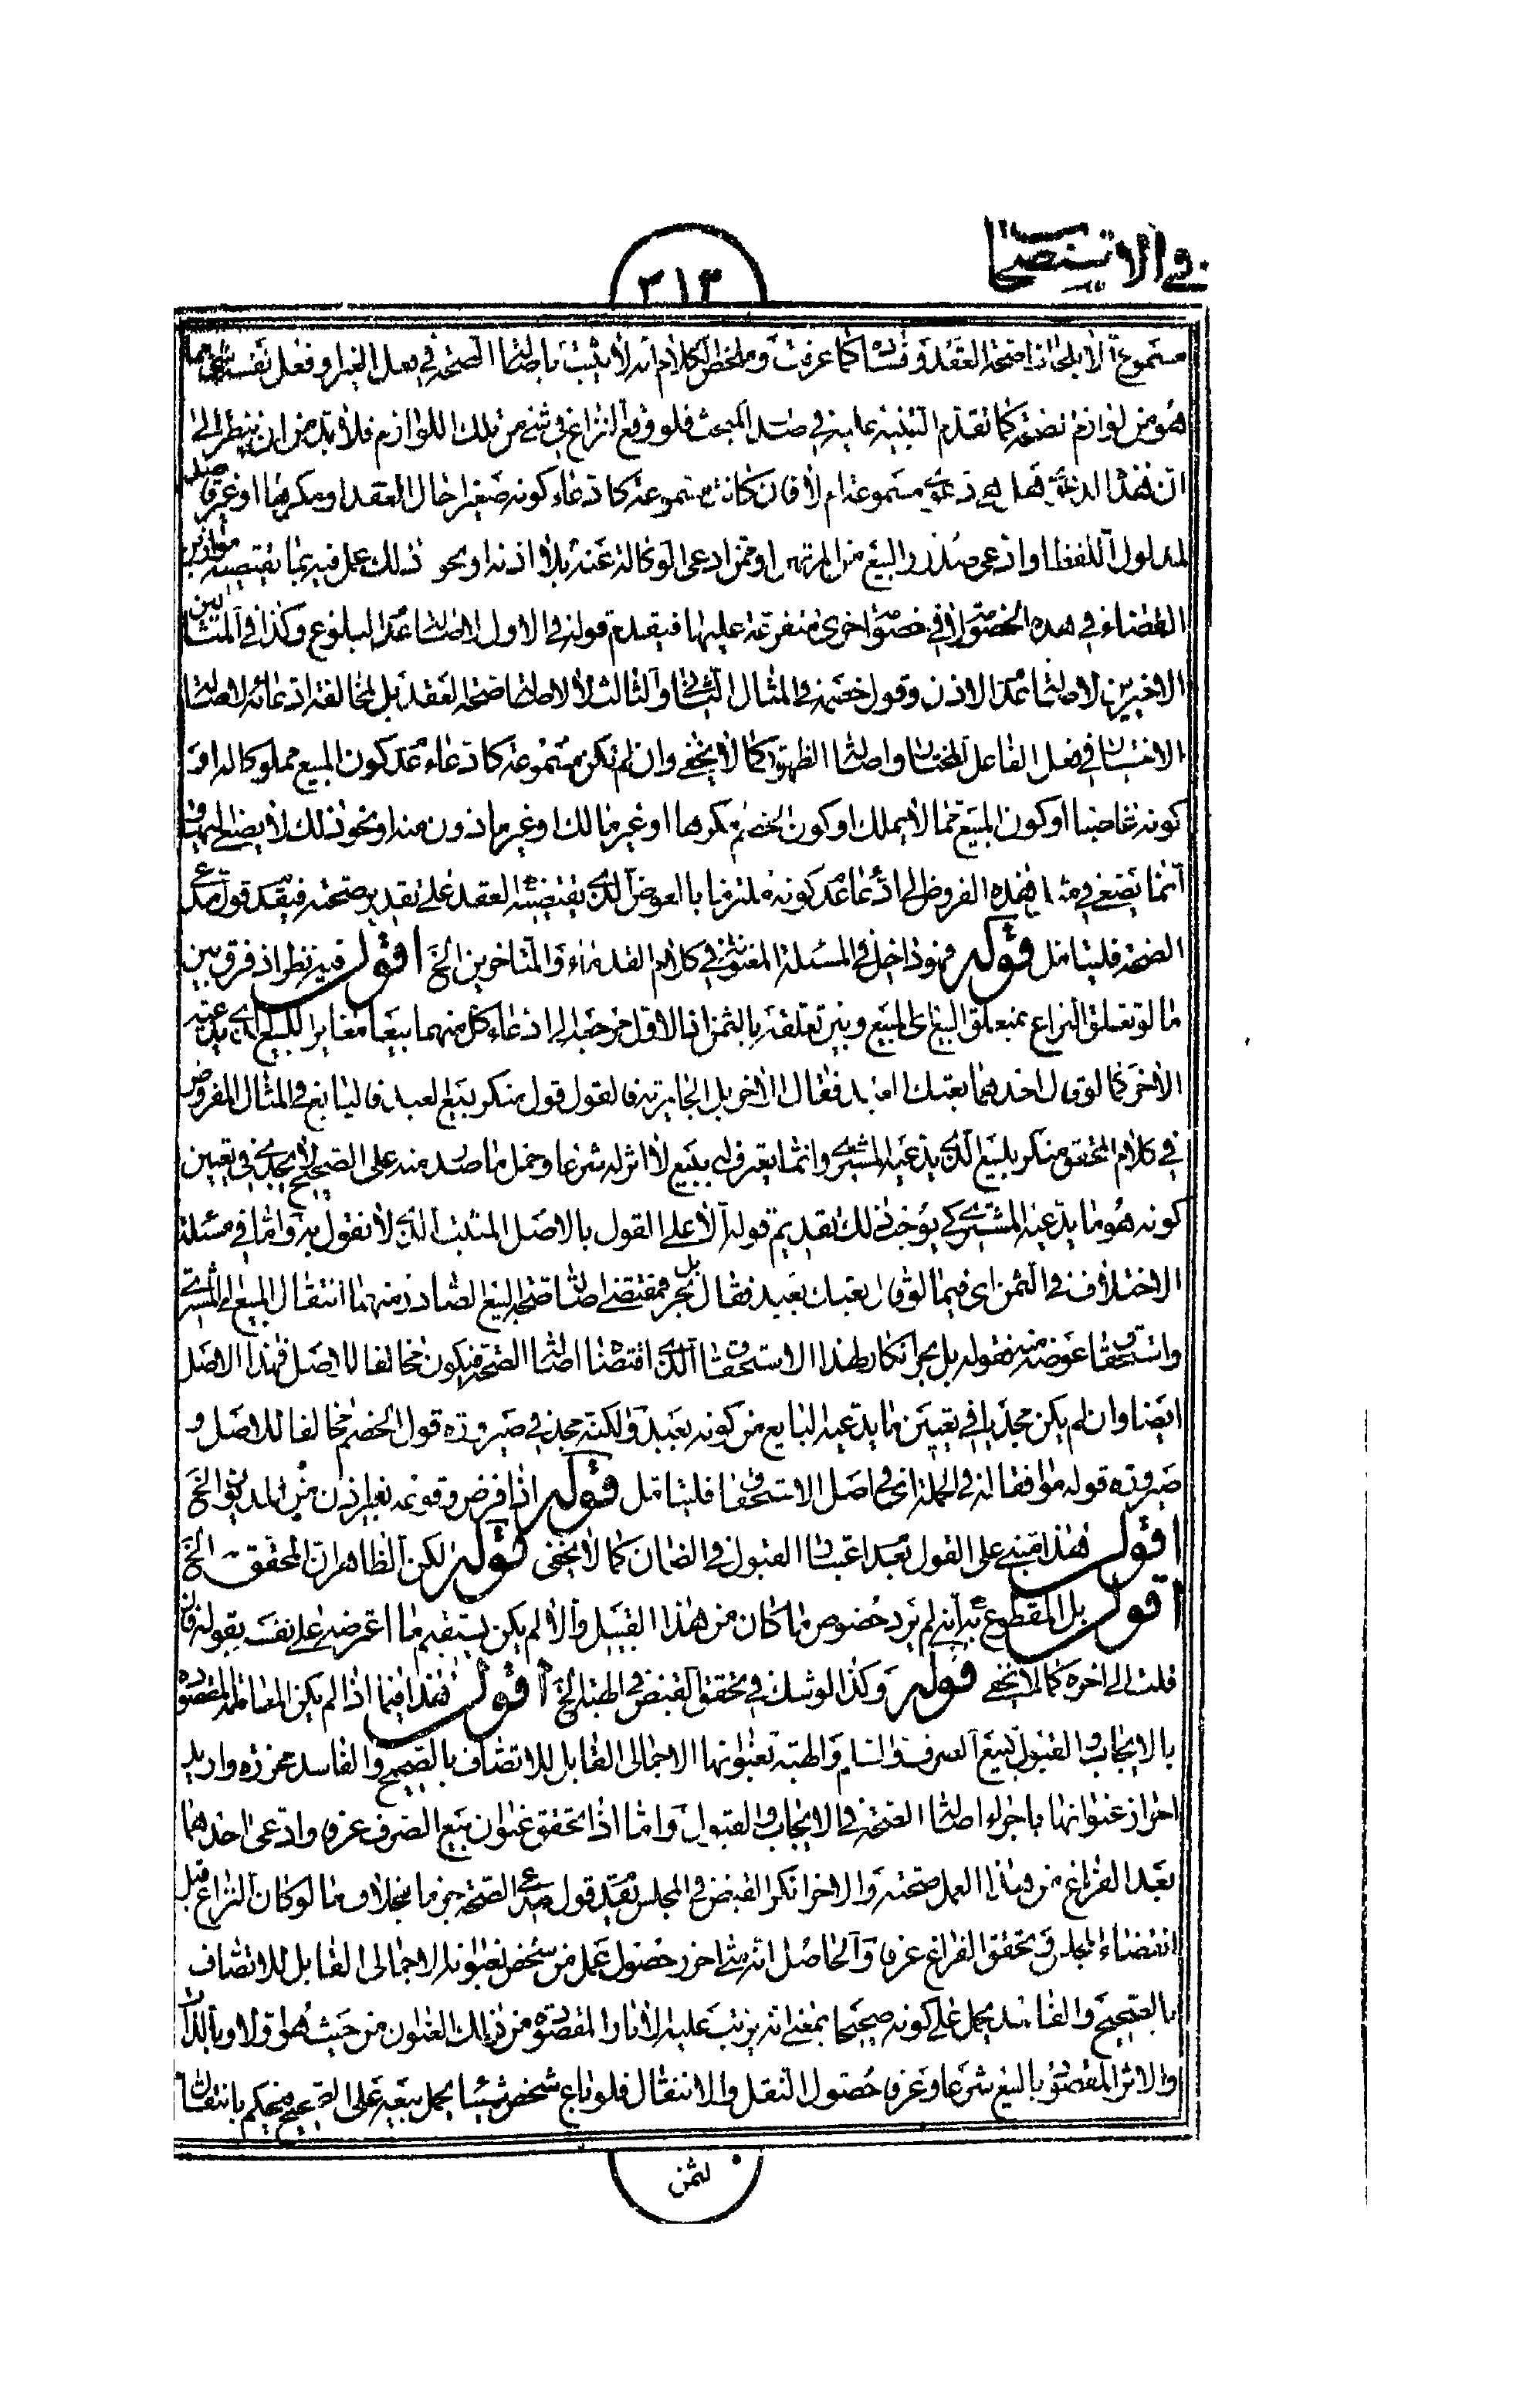 في الاستصحاب
٢١٣
مسموعة الا بلحاظ صحة العقد وفساده كما عرفت وملخص الكلام انه لا يثبت باصالة الصحة في فعل الغير او فعل نفسه شيء مما
هو من لوازم نقيضه كما تقدم التنبيه عليه في صدر المبحث فلو وقع النزاع في شيء من تلك اللوازم فلا بد من ان ينظر الى
ان هذه الدعوى هل هي دعوى مسموعة ام لا فان كانت مسموعة كادعاء كونه صغيرا حال العقد او مكرها او غير قاصد
لمدلول اللفظ او ادعى صدور البيع من المرتهن او ممن ادعى الوكالة عنه بلا اذنه او نحو ذلك عمل فيه بما يقتضيه موازين
القضاء في هذه الخصومة لا في خصومة اخرى متفرعة عليها فيقدم قوله في الاول لاصالة عدم البلوغ وكذا في المثالين
الاخيرين لاصالة عدم الاذن وقول خصمه في المثال الثاني والثالث لا لاصالة صحة العقد بل لمخالفة ادعائه لاصالة
الاختيار في فعل الفاعل المختار واصالة الظهور كما لا يخفى وان لم تكن مسموعة كادعاء عدم كون المبيع مملوكا له او
كونه غاصبا او كون المبيع مما لا يملك او كون الخصم مكرها او غير مالك او غير ماذون منه او نحو ذلك لا يصغى اليها و
انما يصغى في مثل هذه الفروض الى ادعاء عدم كونه ملتزما بالعوض الذي يقتضيه العقد على تقدير صحته فيقدم قول مدعي
الصحة فليتامل قوله فهو داخل في المسئلة المعنونة في كلام القدماء والمتاخرين الخ اقول فيه نظر اذ فرق بين
ما لو تعلق النزاع بمتعلق البيع اي المبيع وبين تعلقه بالثمن اذ الاول مرجعه الى ادعاء كل منهما بيعا مغايرا للبيع الذي يدعيه
الآخر كما لو قال احدهما بعتك العبد فقال الآخر بل الجارية فالقول قول منكر بيع العبد فالبايع في المثال المفروض
في كلام المحقق منكر للبيع الذي يدعيه المشتري وانما يعترف ببيع لا اثر له شرعا وحمل ما صدر منه على الصحيح لا يجدي في تعيين
كونه هو ما يدعيه المشتري كي يوجب ذلك تقديم قوله الا على القول بالاصل المثبت الذي لا نقول به واما في مسئلة
الاختلاف في الثمن اي فيما لو قال بعتك بعبد فقال بل بحر فمقتضى اصالة صحة البيع الصادر منهما انتقال المبيع الى المشتري
واستحقاق عوضه منه فقوله بل بحر انكار لهذا الاستحقاق الذي اقتضاه اصالة الصحة فيكون مخالفا للاصل فهذا الاصل
ايضا وان لم يكن مجديا في تعيين ما يدعيه البايع من كونه بعبد ولكنه مجد في صيرورة قول الخصم مخالفا للاصل و
صيرورة قوله موافقا له في الجملة اي في اصل الاستحقاق فليتامل قوله اذا فرض وقوعه بغير اذن من المديون الخ
اقول هذا مبني على القول بعدم اعتبار القبول في الضمان كما لا يخفى قوله لكن الظاهر ان المحقق الخ
اقول بل المقطوع به انه لم يرد خصوص ما كان من هذا القبيل والا لم يكن يستقيم ما اعترضه على نفسه بقوله فان
قلت الى اخره كما لا يخفى قوله وكذا لو شك في تحقق القبض في الهبة الخ اقول هذا فيما اذا لم يكن المعاملة المقصودة
بالايجاب والقبول كبيع الصرف والسلم والهبة بعنوانها الاجمالي القابل للاتصاف بالصحيح والفاسد محرزة واريد
احراز عنوانها باجراء اصالة الصحة في الايجاب والقبول واما اذا تحقق عنوان بيع الصرف عرفا وادعى احدهما
بعد الفراغ من هذا العمل صحته والاخر انكر القبض في المجلس يقدم قول مدعي الصحة جزما بخلاف ما لو كان النزاع قبل
انقضاء المجلس وتحقق الفراغ عرفا والحاصل انه متى احرز حصول عمل من شخص بعنوانه الاجمالي القابل للاتصاف
بالصحيح والفاسد يحمل على كونه صحيحا بمعنى انه يرتب عليه الاثار المقصودة من ذلك العنوان من حيث هو اولا وبالذات
والاثر المقصود بالبيع شرعا وعرفا حصول النقل والانتقال فلو باع شخص شيئا يحمل بيعه على الصحيح فيحكم بانتقال
لثمن